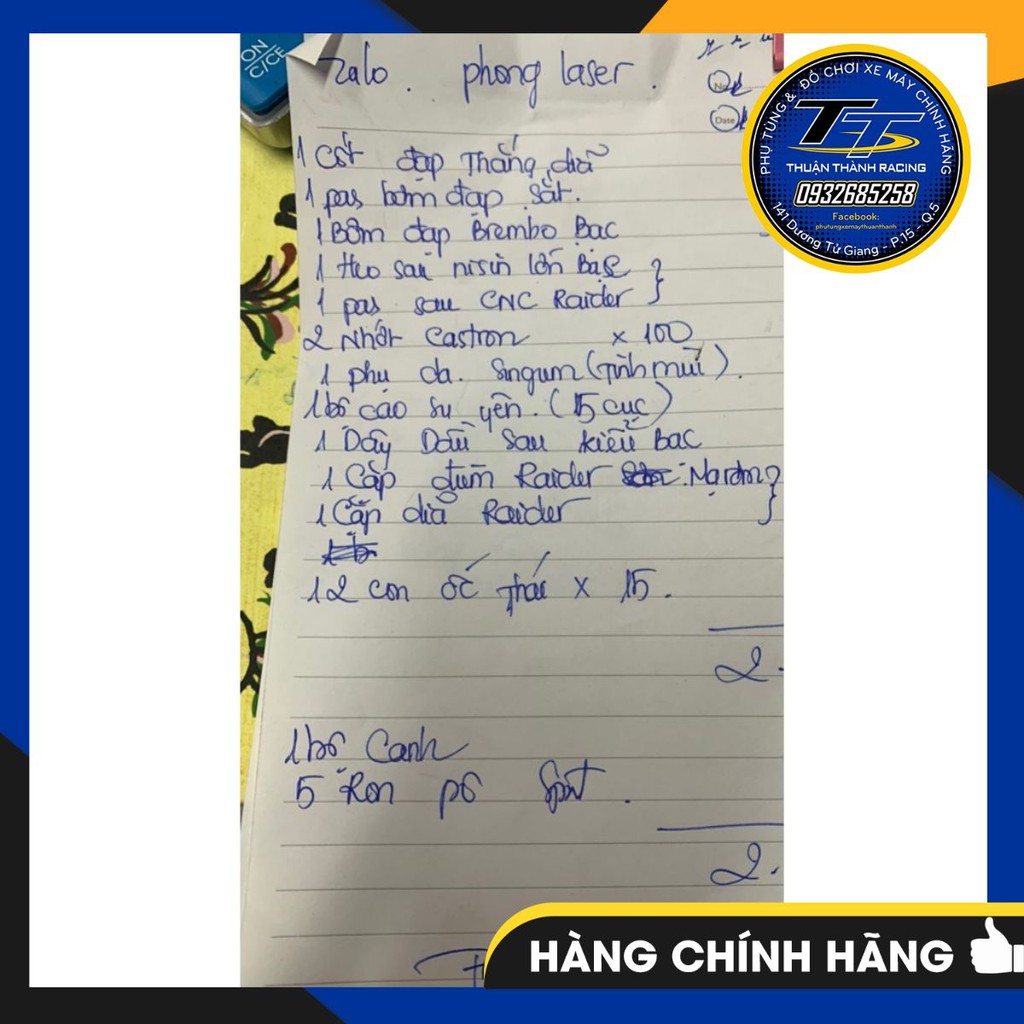 ON
C/CE
Zalo. phong laser.
No
Date
1 Cốt đạp Thắng dĩa
1 pas bơm đạp sắt.
1 Bơm đạp Brembo Bạc
1 Heo sau nisin lớn Bạc
1 pas sau CNC Raider
2 Nhớt Castron x 100
1 phụ da. Singum (Tinh mùi).
1 bộ cao su yên. (15 cục)
1 Dây Dầu sau kiểu Bạc
1 Cặp đùm Raider
1 Cặp dĩa Raider
12 con ốc trái x 15.
2.
1 bộ Canh
5 Ron pô
2.
PHỤ TÙNG & ĐỒ CHƠI XE MÁY CHÍNH HÃNG
TT
THUẬN THÀNH RACING
0932685258
Facebook:
phutungxemaythuanthanh
141 Dương Tử Giang - P.15 - Q.5
HÀNG CHÍNH HÃNG